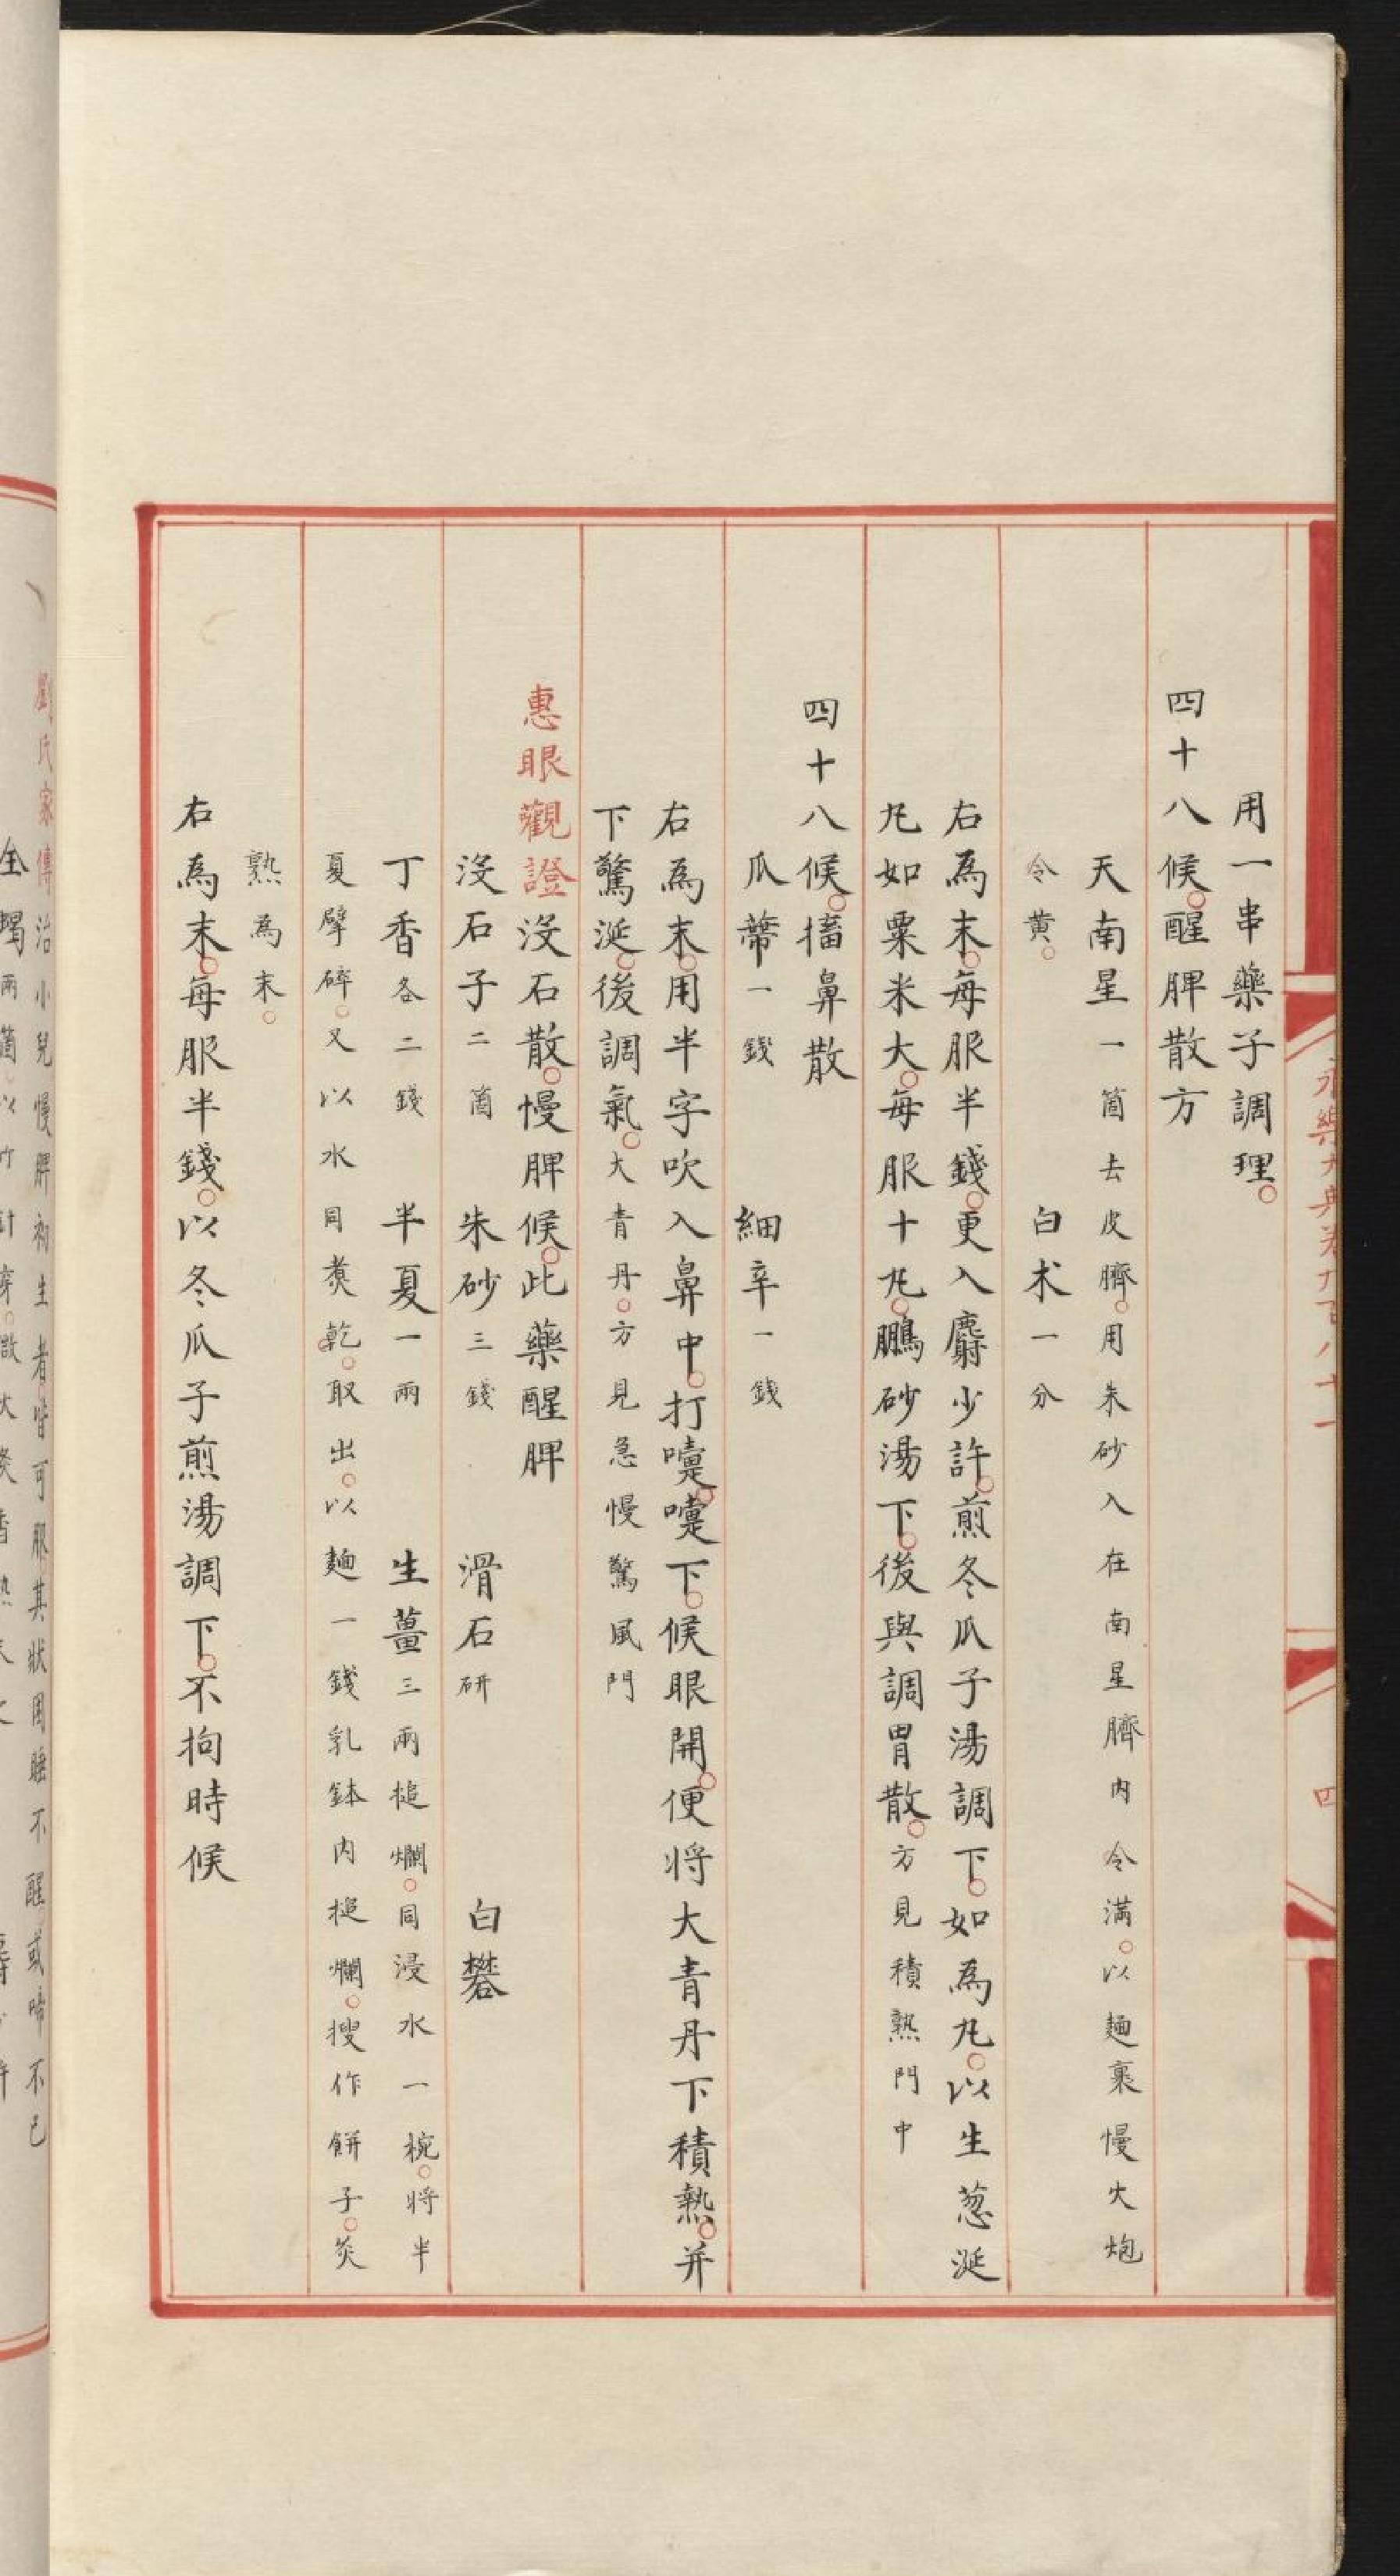 永樂大典卷九百八十一
四
用一串藥子調理。
四十八候。醒脾散方
天南星一箇去皮臍。用朱砂入在南星臍内令滿。以麺裹慢火炮
令黄。白术一分
右爲末。每服半錢。更入麝少許。煎冬瓜子湯調下。如爲圪。以生葱涎
圪如粟米大。每服十圪。鵬砂湯下。後與調胃散。方見積熱門中
四十八候。搐鼻散
瓜蔕一錢 細辛一錢
右爲末。用半字吹入鼻中。打嚏。嚏下。候眼開。便将大青丹下積熱。并
下驚涎。後調氣。大青丹。方見急慢驚風門
惠眼觀證没石散。慢脾候。此藥醒脾
没石子二箇 朱砂三錢 滑石研 白礬
丁香各二錢 半夏一兩 生薑三兩搥爛。同浸水一椀。将半
夏擘碎。又以水同煑乾。取出。以麺一錢乳鉢内搥爛。搜作餅子。炙
熟爲末。
右爲末。每服半錢。以冬瓜子煎湯調下。不拘時候
劉氏家傳治小兒慢脾初生者。皆可服其狀困睡不醒。或啼不已
全蝎兩箇。以竹針穿。